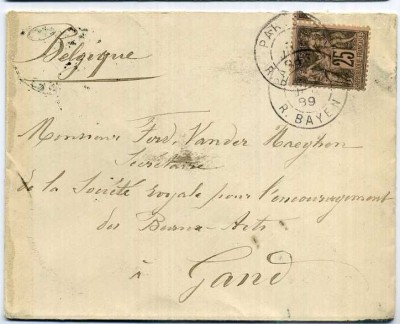 Belgique
PARIS
R. BAYEN
99
25
Monsieur Ferd. Vander Haeghen
Secrétaire
de la Société royale pour l'encouragement
des Beaux-Arts
à
Gand